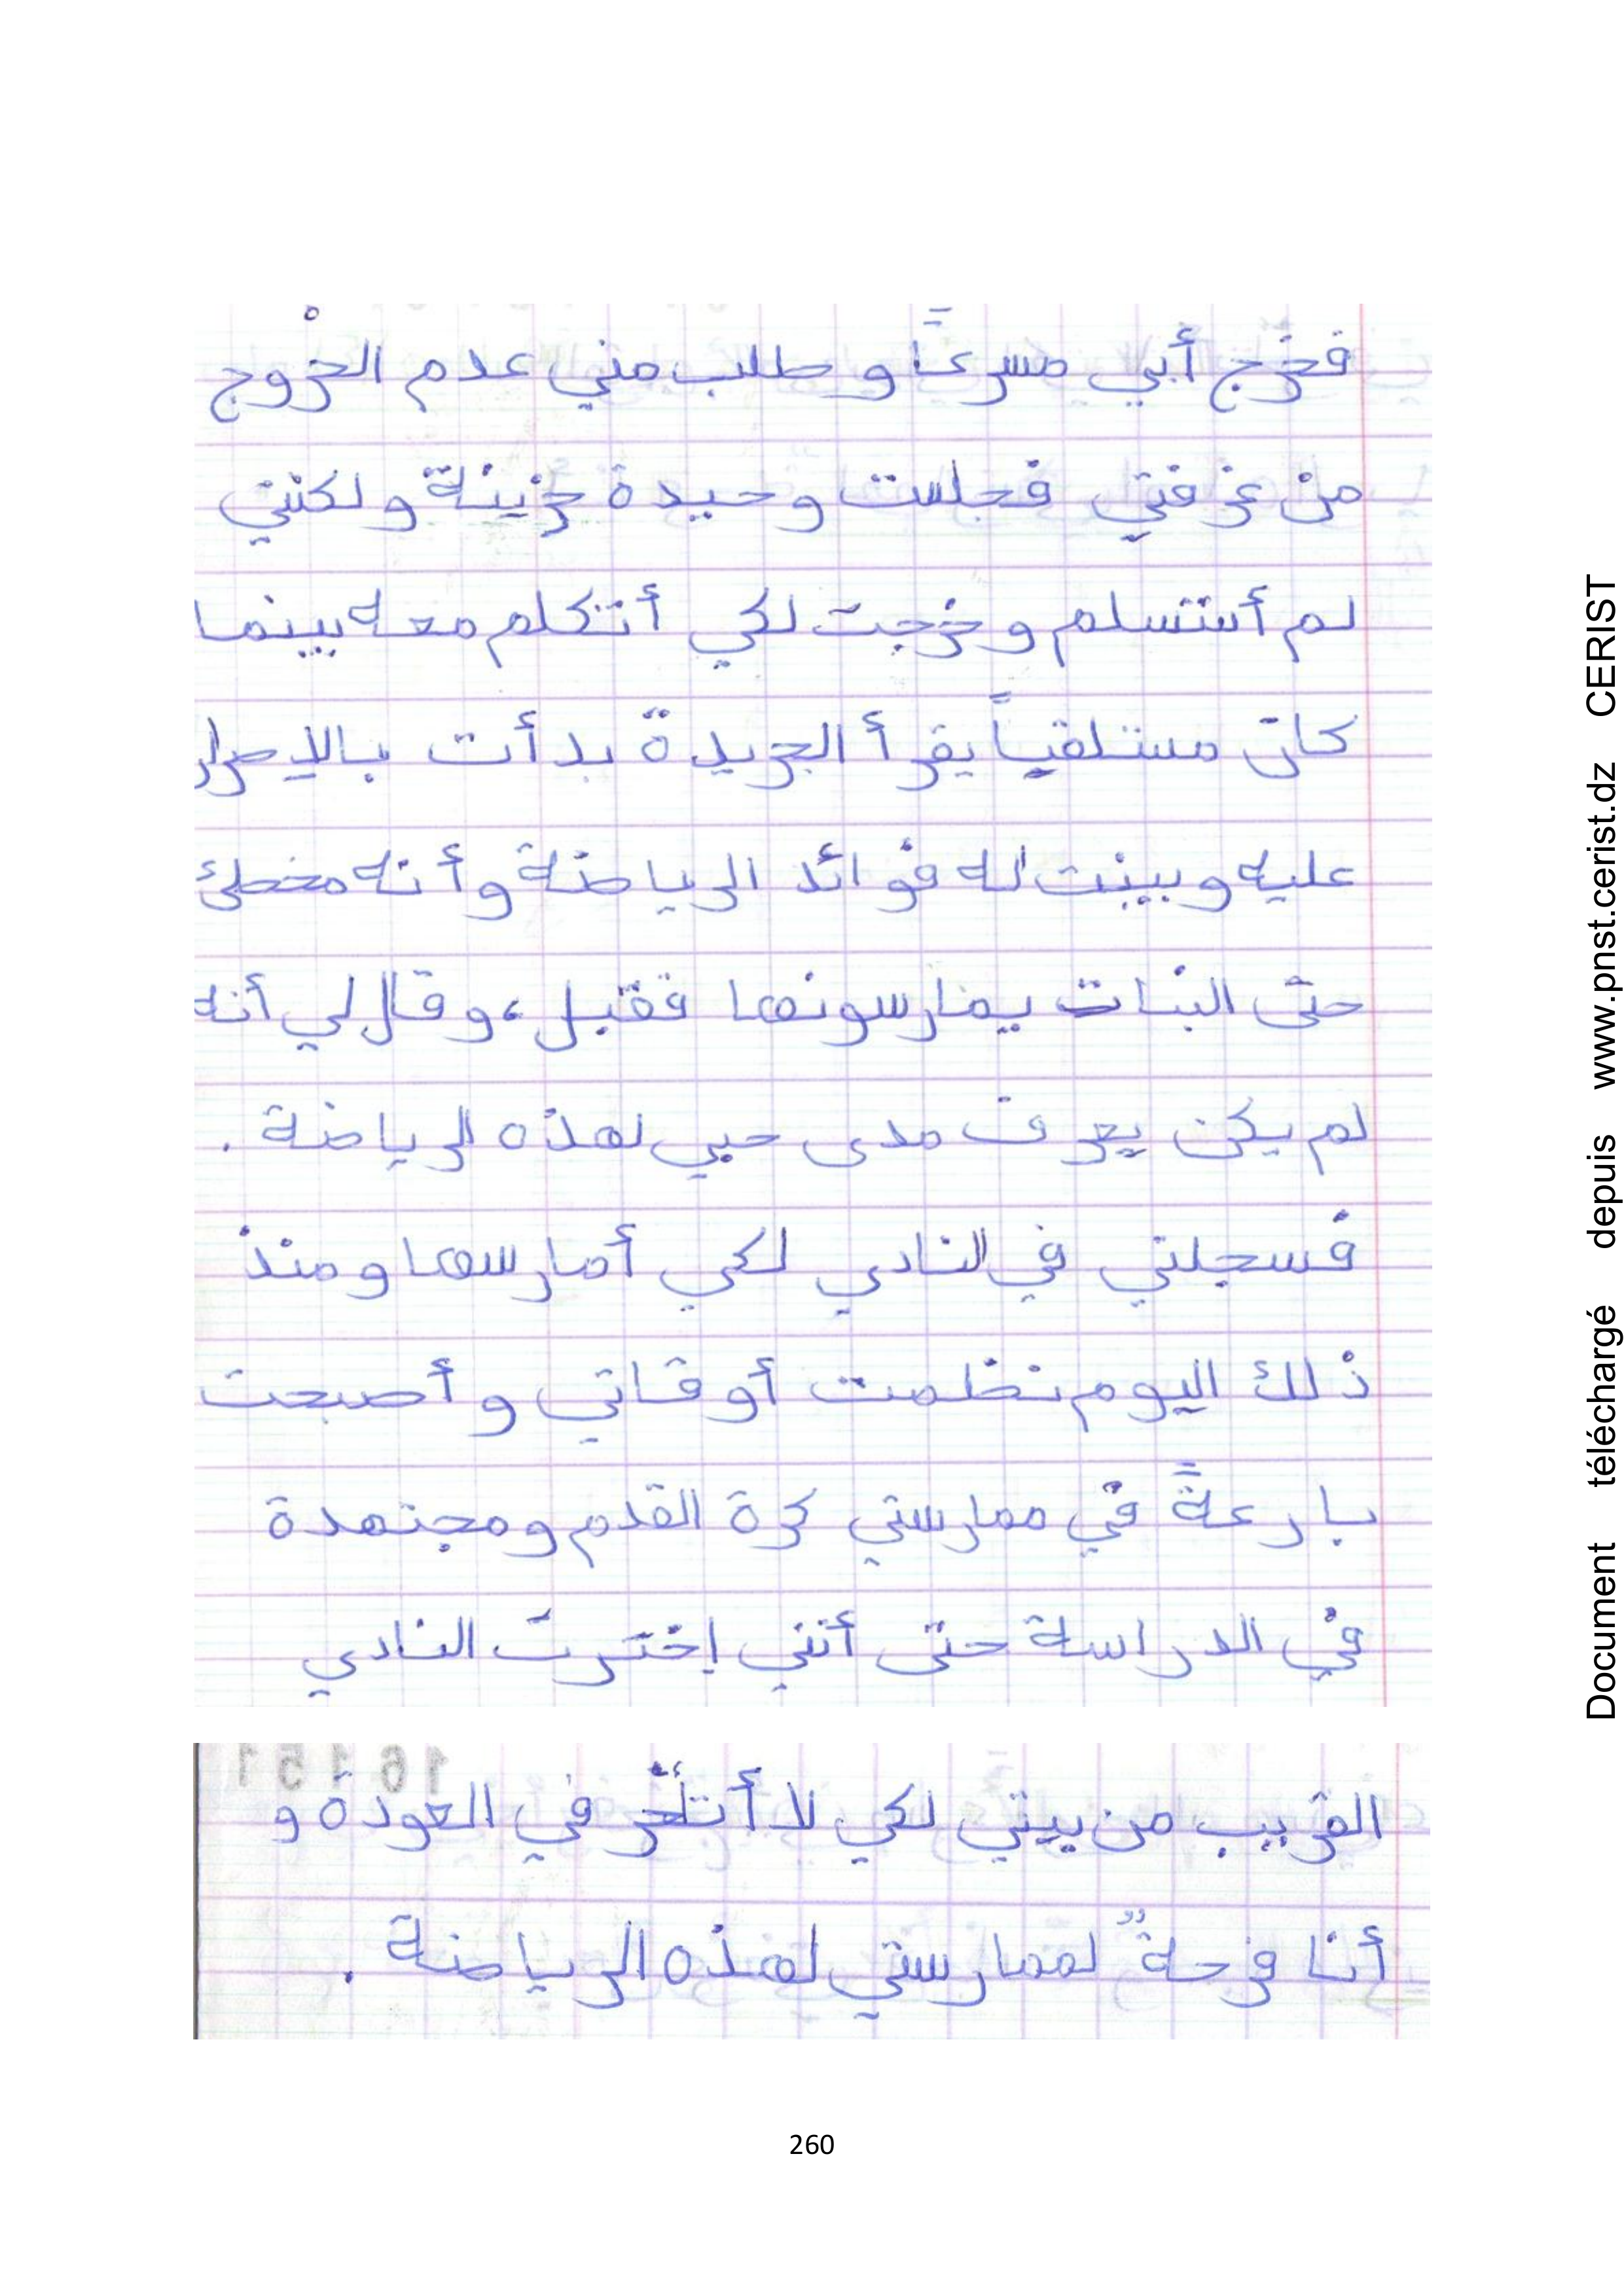 فخرج أبي مسرعاً و طلب مني عدم الخروج
من غرفتي فجلست وحيدة حزينة و لكنني
لم أستسلم و خرجت لكي أتكلم معه بينما
كان مستلقياً يقرأ الجريدة بدأت بالإصرار
عليه و بينت له فوائد الرياضة و أنه مخطئ
حتى البنات يمارسونها فقبل ، و قال لي أنه
لم يكن يعرف مدى حبي لهذه الرياضة .
فسجلني في النادي لكي أمارسها و منذ
ذلك اليوم نظمت أوقاتي و أصبحت
بارعةً في ممارستي كرة القدم و مجتهدة
في الدراسة حتى أنني إخترت النادي
القريب من بيتي لكي لا أتأخر في العودة و
أنا فرحةٌ لممارستي لهذه الرياضة .
260
Document téléchargé depuis www.pnst.cerist.dz CERIST